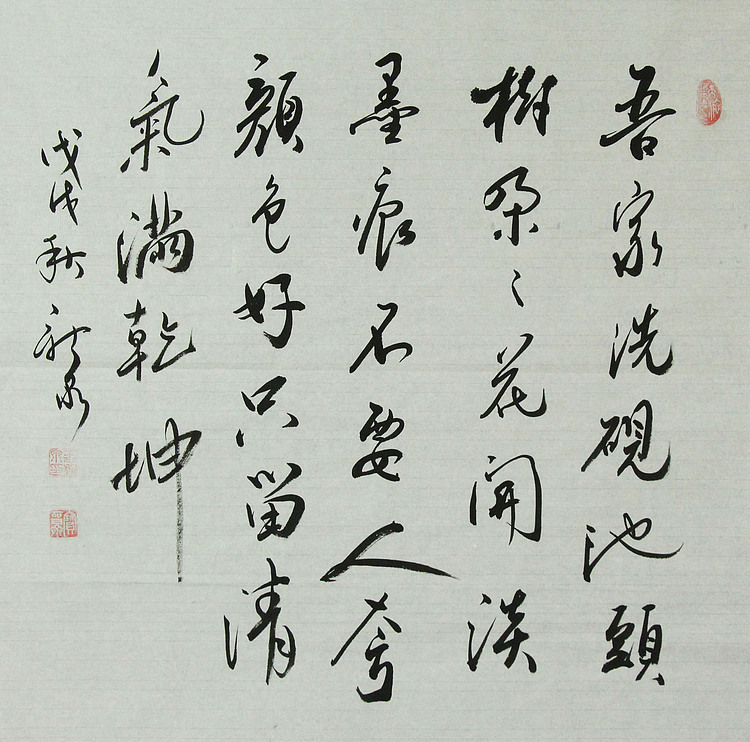 吾家洗硯池頭
樹朶〻花開淡
墨痕不要人夸
顏色好只留清
氣滿乾坤
戊戌秋